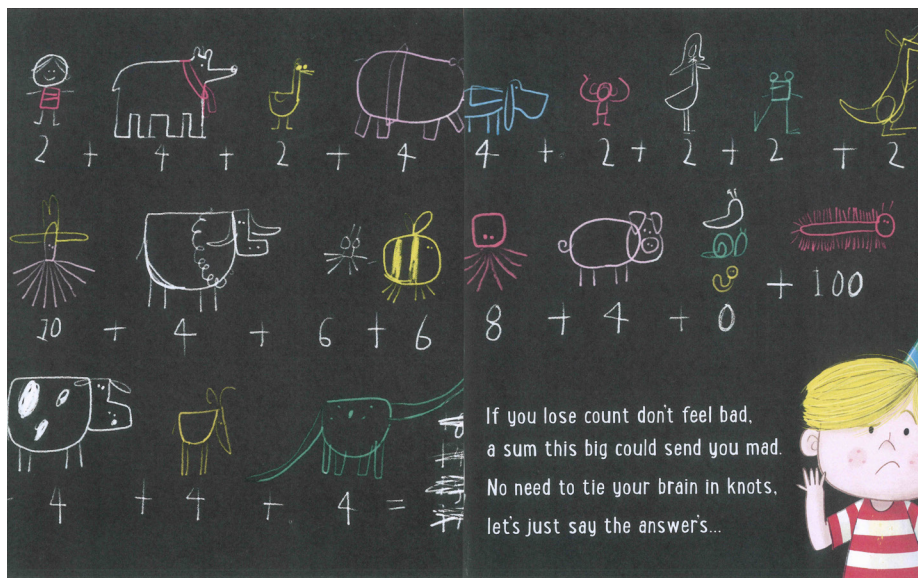 2 + 4 + 2 + 4 4 + 2 + 2 + 2 + 2
10 + 4 + 6 + 6 8 + 4 + 0 + 100
4 + 4 + 4 =
If you lose count don't feel bad,
a sum this big could send you mad.
No need to tie your brain in knots,
let's just say the answer's...